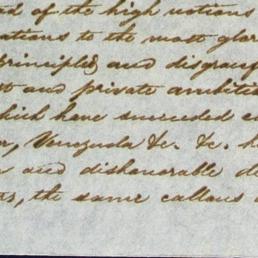 ed of the high notions
ations to the most glor
principles and disgracef
st and private ambiti
which have succeeded
r, Venezuela &c. &c. h
and dishonorable de
the same callous